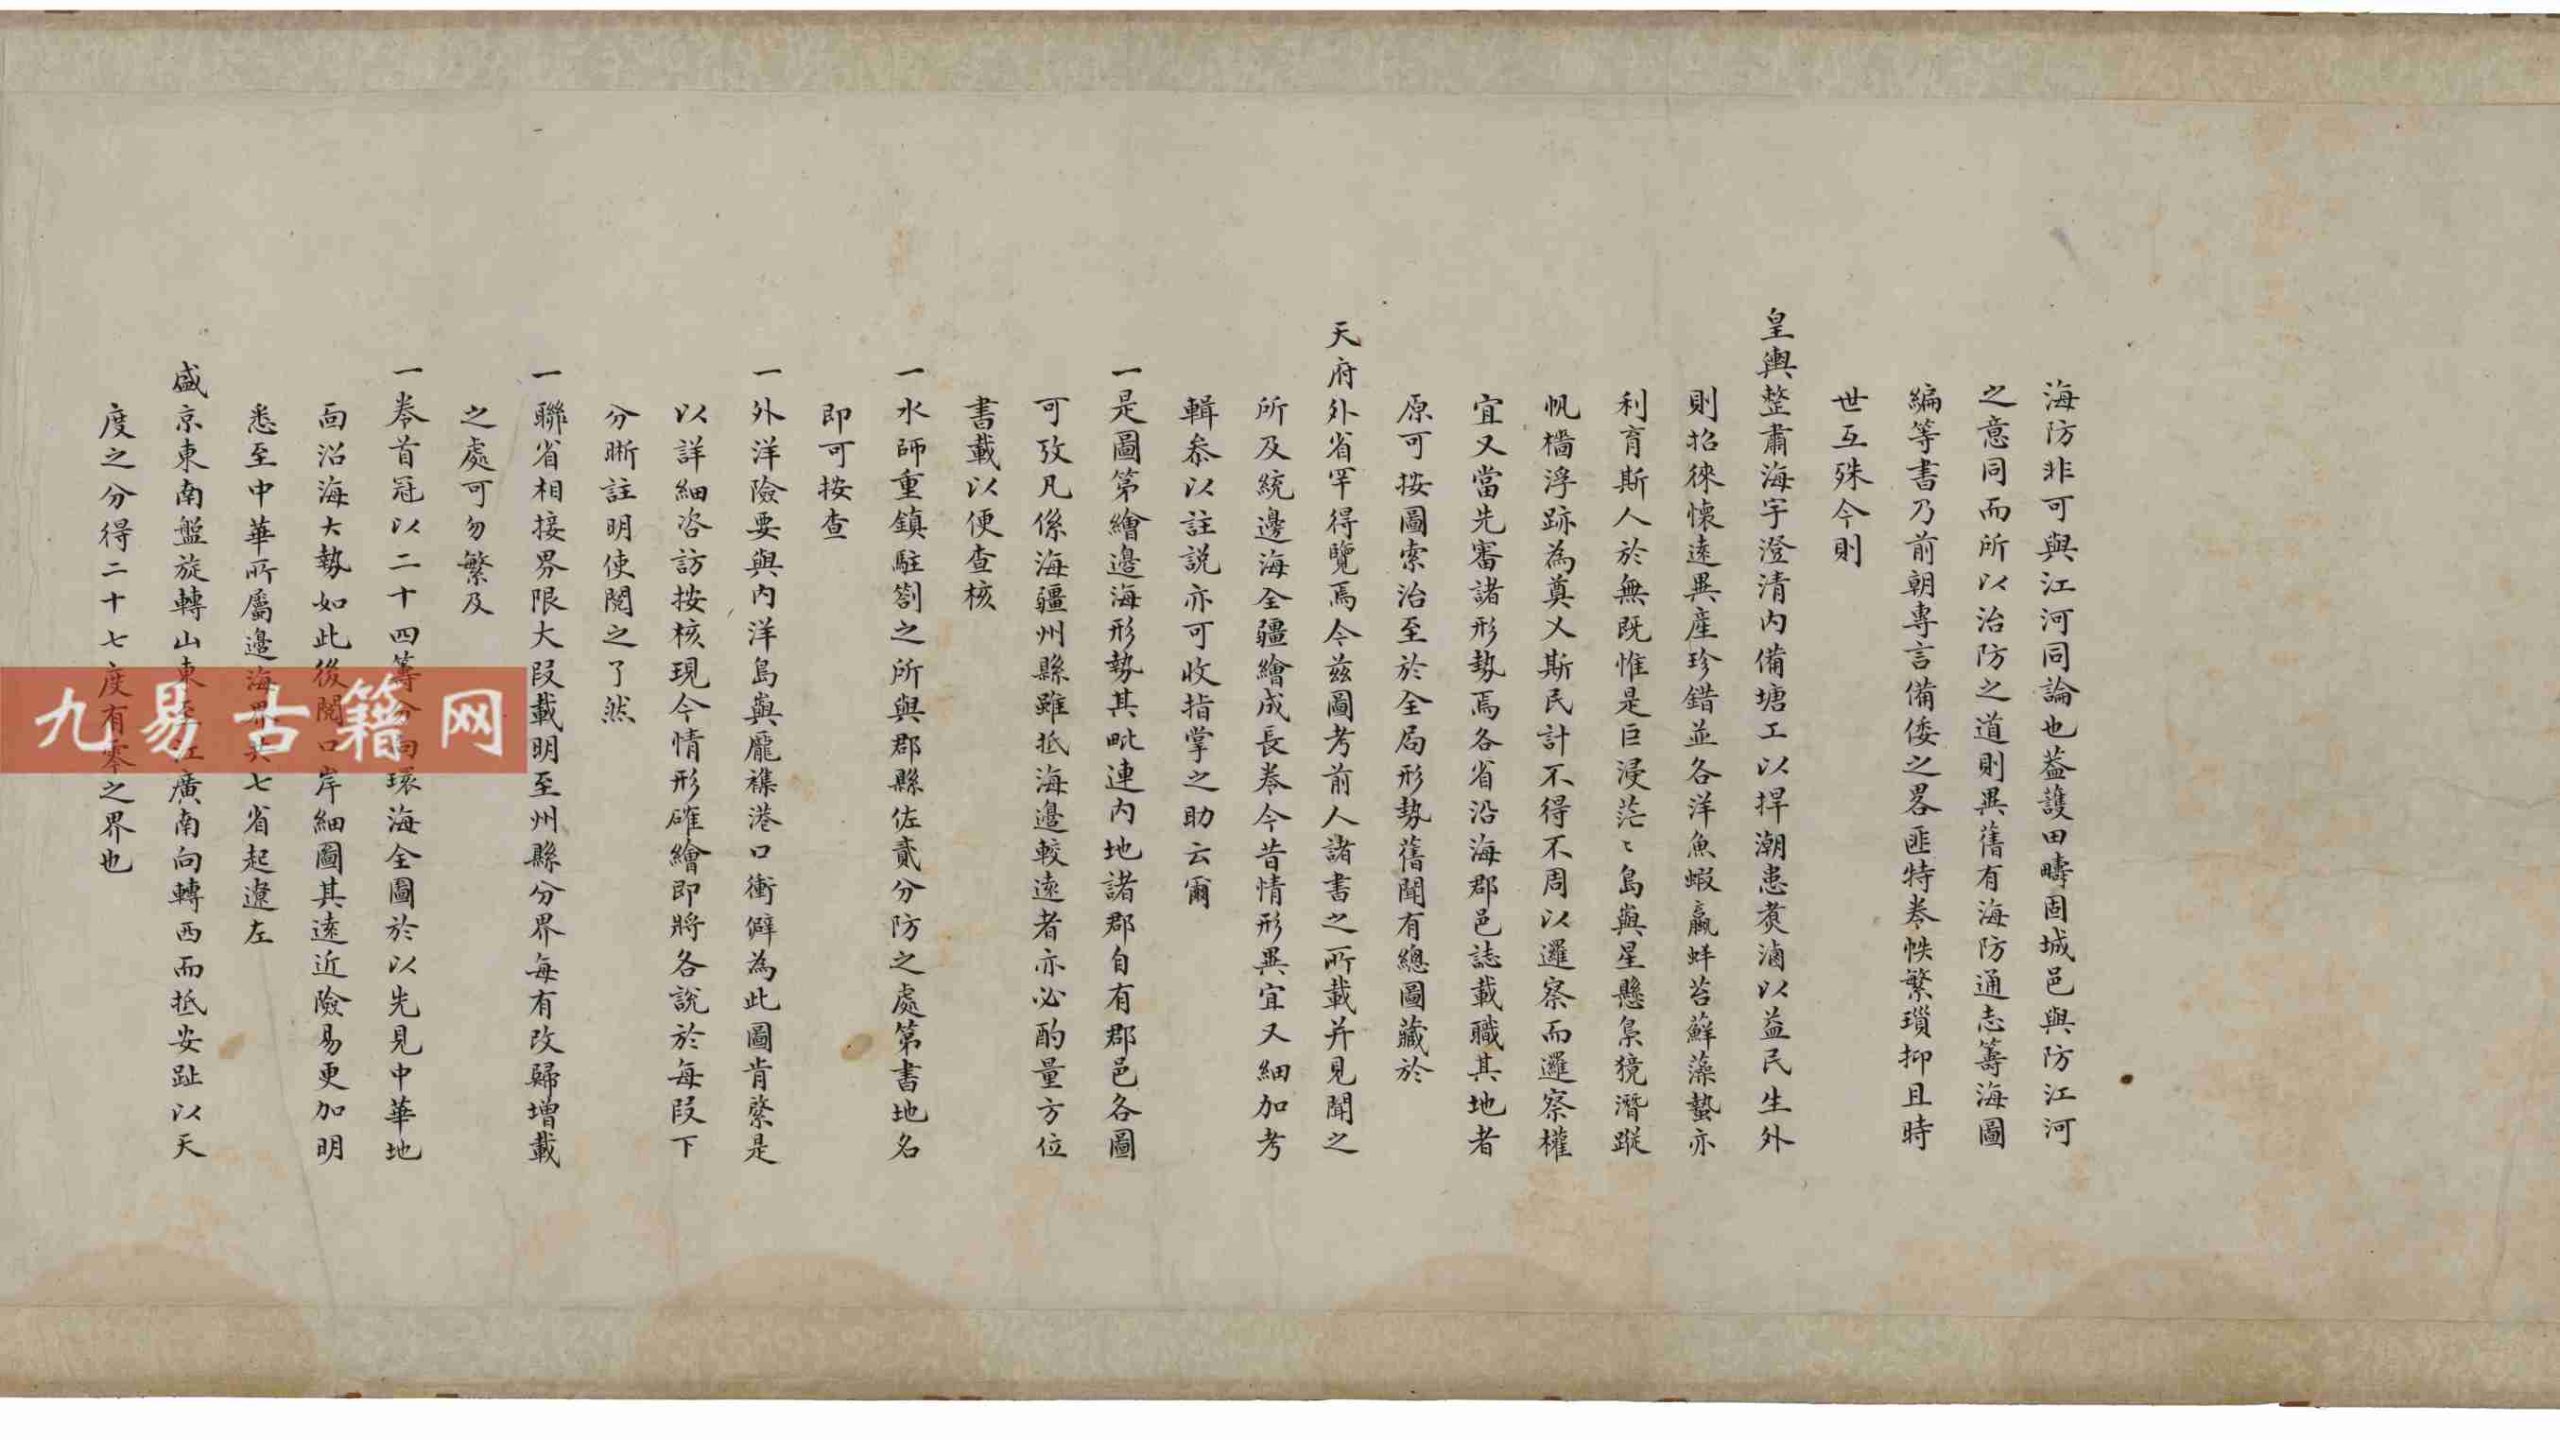 海防非可與江河同論也蓋護田疇固城邑與防江河
之意同而所以治防之道則異舊有海防通志籌海圖
編等書乃前朝專言備倭之畧匪特卷帙繁瑣抑且時
世互殊今則
皇輿整肅海宇澄清內備塘工以捍潮患煮滷以益民生外
則招徠懷遠異產珍錯並各洋魚蝦蠃蚌苔蘚藻蟄亦
利育斯人於無既惟是巨浸茫〻島與星懸梟獍潛蹤
帆檣浮跡為奠乂斯民計不得不周以邏察而邏察權
宜又當先審諸形勢焉各省沿海郡邑誌載職其地者
原可按圖索治至於全局形勢舊聞有總圖藏於
天府外省罕得覽焉今茲圖考前人諸書之所載并見聞之
所及統邊海全疆繪成長卷今昔情形異宜又細加考
輯叅以註説亦可收指掌之助云爾
一是圖第繪邊海形勢其毗連內地諸郡自有郡邑各圖
可攷凡係海疆州縣雖抵海邊較遠者亦必酌量方位
書載以便查核
一水師重鎮駐劄之所與郡縣佐貳分防之處第書地名
即可按查
一外洋險要與內洋島與龐襍港口衝僻為此圖肯綮是
以詳細咨訪按核現今情形確繪即將各説於每段下
分晰註明使閱之了然
一聯省相接界限大段載明至州縣分界每有改歸增載
之處可勿繁及
一卷首冠以二十四籌分向環海全圖於以先見中華地
面沿海大勢如此後閱口岸細圖其遠近險易更加明
悉至中華所屬邊海界共七省起遼左
盛京東南盤旋轉山東至江廣南向轉西而抵安趾以天
度之分得二十七度有零之界也
九易古籍网